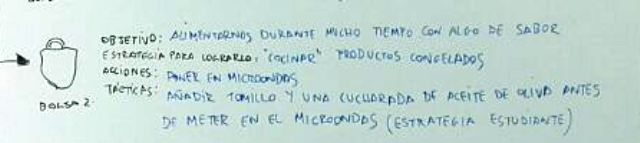 OBJETIVO: ALIMENTARNOS DURANTE MUCHO TIEMPO CON ALGO DE SABOR
ESTRATEGIA PARA LOGRARLO: "COCINAR" PRODUCTOS CONGELADOS
ACCIONES: PONER EN MICROONDAS
TÁCTICAS: AÑADIR TOMILLO Y UNA CUCHARADA DE ACEITE DE OLIVA ANTES
DE METER EN EL MICROONDAS (ESTRATEGIA ESTUDIANTE)
BOLSA 2